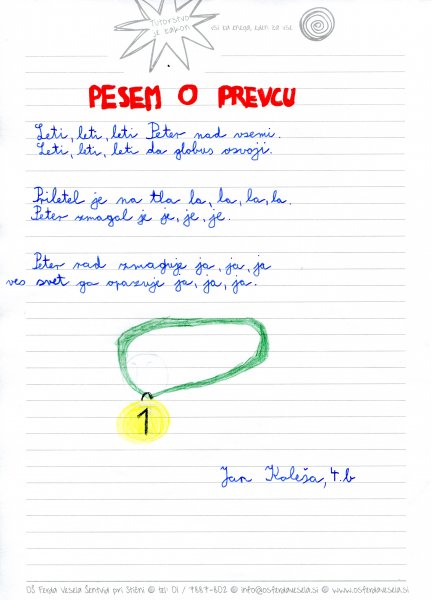 Tutorstvo
je zakon
vsi za enega, eden za vse
PESEM O PREVCU
Leti, leti, leti Peter nad vsemi.
Leti, leti, leti da globus osvoji.
Priletel je na tla la, la, la, la.
Peter zmagal je je, je, je.
Peter rad zmaguje ja, ja, ja
ves svet ga opazuje ja, ja, ja.
1
Jan Koleša, 4.b
OŠ Ferda Vesela Šentvid pri Stični © tel: 01 / 7887-602 © info@osferdavesela.si © www.osferdavesela.si